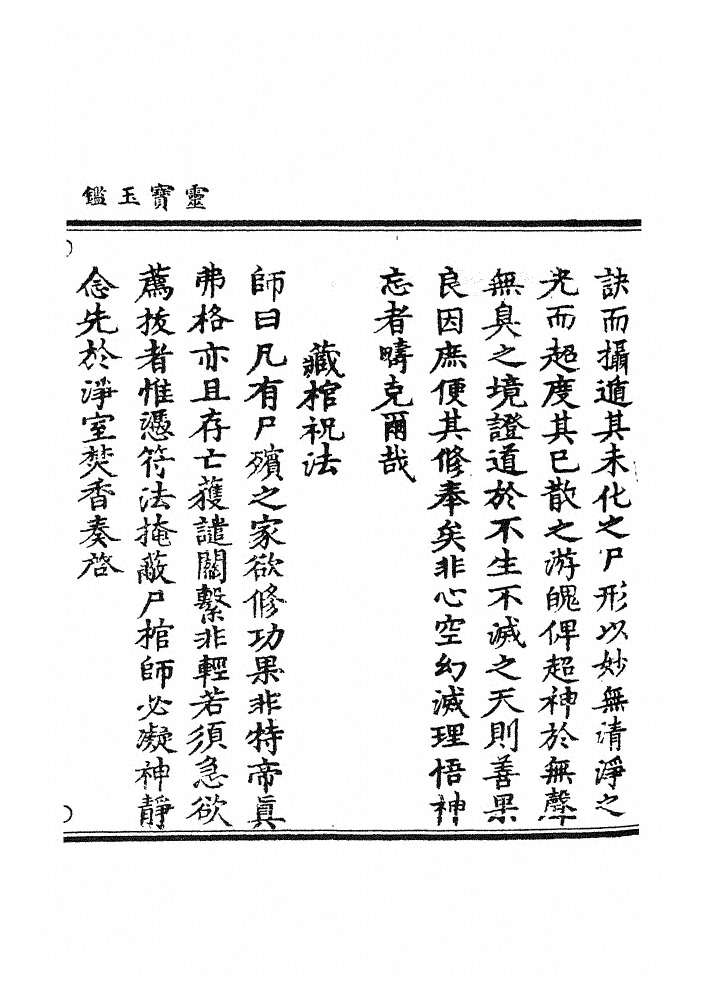 靈寶玉鑑
訣而攝遁其未化之尸形以妙無清淨之
光而超度其已散之游魄俾超神於無聲
無臭之境證道於不生不滅之天則善果
良因庶便其修奉矣非心空幻滅理悟神
忘者疇克爾哉
藏棺祝法
師曰凡有尸殯之家欲修功果非特帝眞
弗格亦且存亡獲譴關繫非輕若須急欲
薦拔者惟憑符法掩蔽尸棺師必凝神靜
念先於淨室焚香奏啓